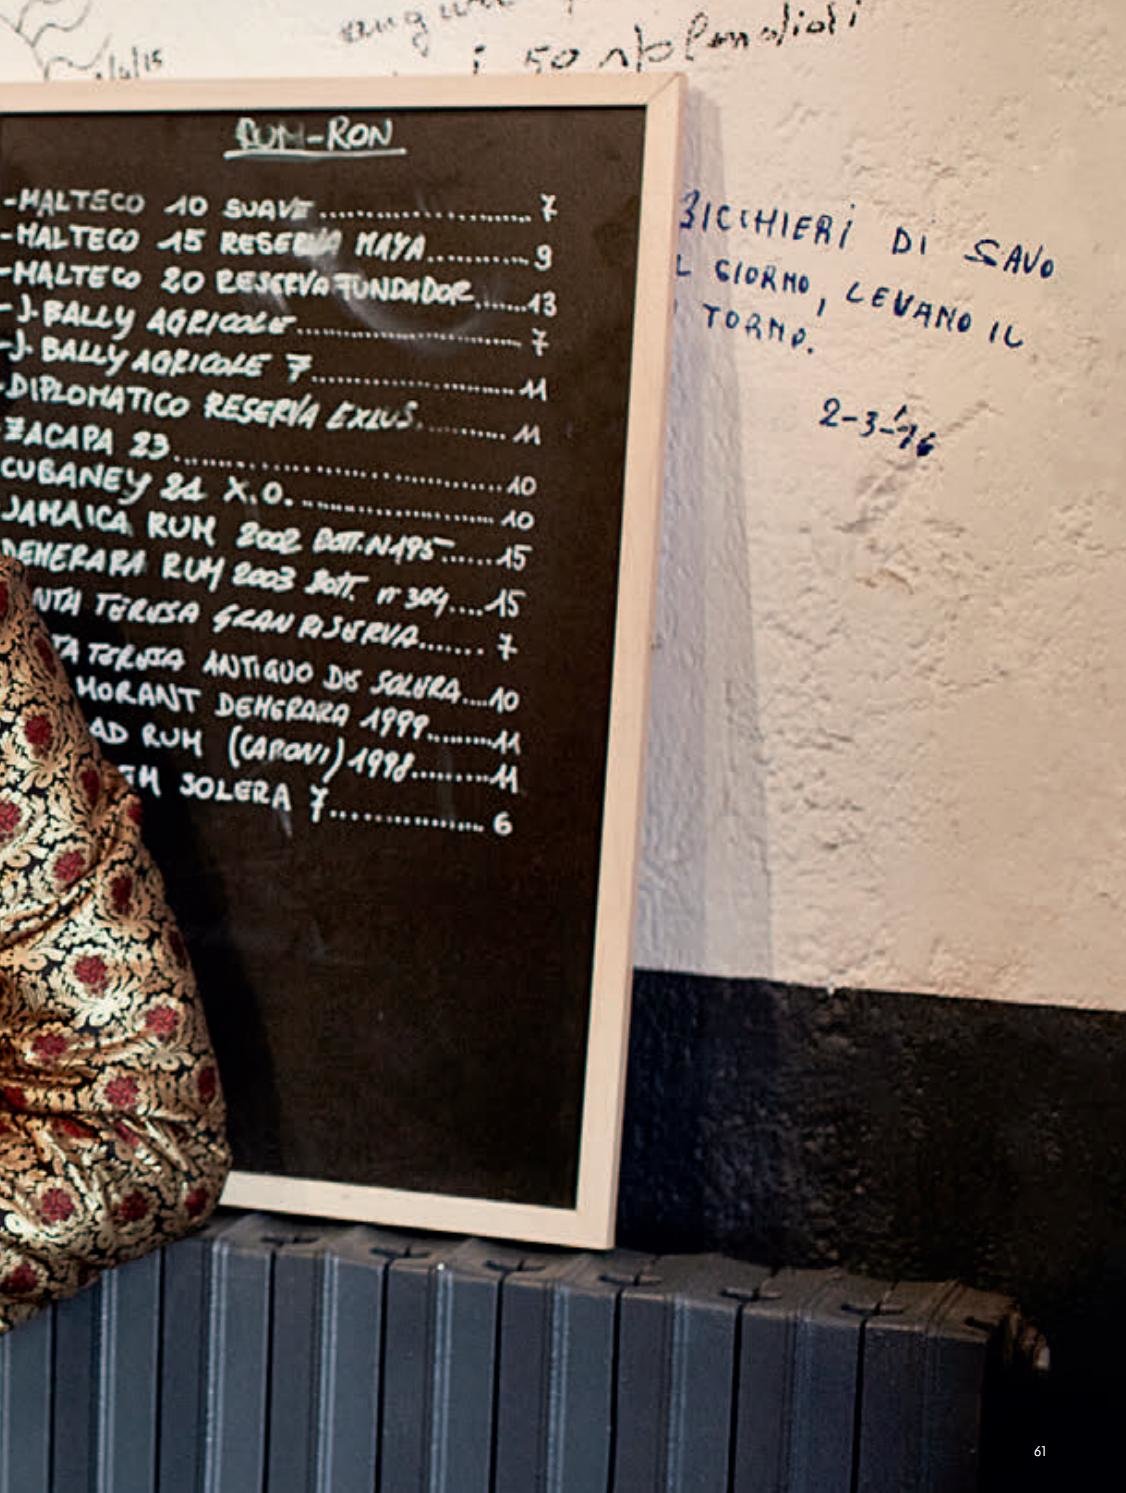 i 50 splendidi
1/4/15
RUM-RON
-MALTECO 10 SUAVE........................ 7
-MALTECO 15 RESERVA MAYA...........9
-MALTECO 20 RESERVA FUNDADOR......13
-J. BALLY AGRICOLE......................... 7
-J. BALLY AGRICOLE 7.....................11
-DIPLOMATICO RESERVA EXLUS.........11
ZACAPA 23...............................10
CUBANEY 21 X.O. .....................10
JAMAICA RUM 2002 BOTT. N195......15
DEMERARA RUM 2003 BOTT. n 304....15
NTA TERESA GRAN RISERVA....... 7
TA TERESA ANTIGUO DE SOLERA....10
MORANT DEMERARA 1999........11
AD RUM (CARONI) 1998..........11
SOLERA 7................ 6
BICCHIERI DI SAVO
L GIORNO, LEVANO IL
TORNO.
2-3-'16
61